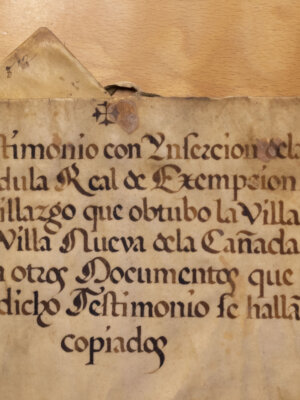 timonio con Ynsercion dela
dula Real de Exempcion
illazgo que obtubo la Villa
Villa Nueva dela Cañada
otros Documentos que
dicho Testimonio se hallã
copiados